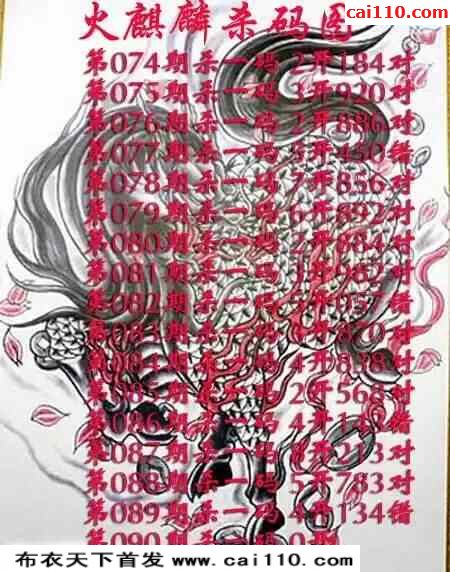 cai110.com
火麒麟杀码图
第074期杀一码 2开184对
第075期杀一码 3开920对
第076期杀一码 2开886对
第077期杀一码 5开450错
第078期杀一码 7开856对
第079期杀一码 6开892对
第080期杀一码 2开684对
第081期杀一码 开982对
第082期杀一码 开957错
期杀一码 开870对
第084期杀一码 4开838对
第085期杀一码 2开568对
第086期杀一码 4开14错
第087期杀一码 开213对
第088期杀一码 5开783对
第089期杀一码 4开134错
第090期杀一码 0开
布衣天下首发 www.cai110.com